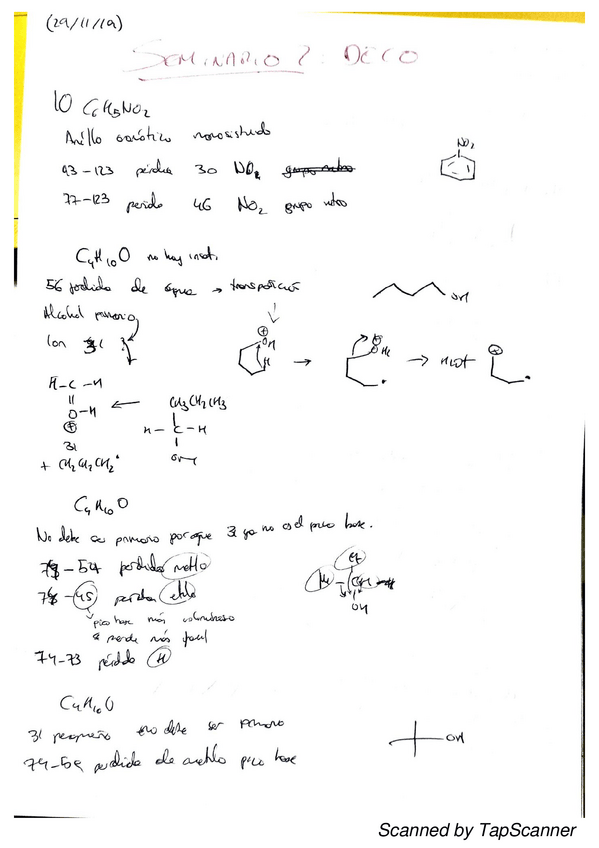 (29/11/19)
SEMINARIO 2: DECO
10 C6H5NO2
Anillo aromático monosustituido
93-123 pérdida 30 NO
77-123 perdida 46 NO2 grupo nitro
NO2
C4H10O no hay inst.
56 perdida de agua → transposición
OH
Alcohol primario
Ion 31
H-C-H
O-H
31
+ CH2CH2CH2•
CH3CH2CH3
H-C-H
OH
C4H10O
No debe ser primario porque 31 ya no es el pico base.
perdida metilo
45 perdida etilo
pico base más voluminoso
se pierde más fácil
74-73 pérdida H
OH
C4H10O
31 pequeño no debe ser primario
74-59 perdida de metilo pico base
OH
Scanned by TapScanner